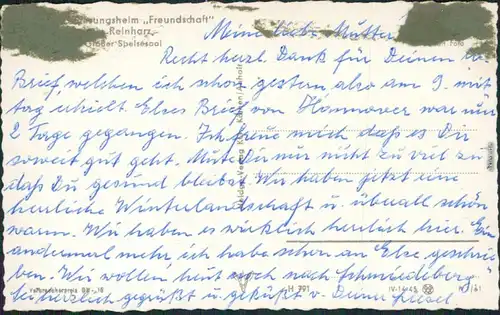 ungsheim „Freundschaft"
Reinharz
Großer Speisesaal
Foto
Meine liebe Mutter
Recht herzl. Dank für Deinen lb
Brief, welchen ich schon gestern, also am 9. mit-
tag erhielt. Elses Brief von Hannover war nur
2 Tage gegangen. Ich freue mich daß es Dir
soweit gut geht. Mute Dir nur nicht zu viel zu
daß Du gesund bleibst. Wir haben jetzt eine
herrliche Winterlandschaft u. überall schön
warm. Wir haben es wirklich herrlich hier. Ein
andermal mehr, ich habe schon an Else geschrie-
ben. Wir wollen heut noch nach Schmiedeberg
Sei herzlich gegrüßt u. geküßt v. Deiner
Verlag Köthen/Anhalt
Verbraucherpreis DM -,18
H 791
IV-14-45